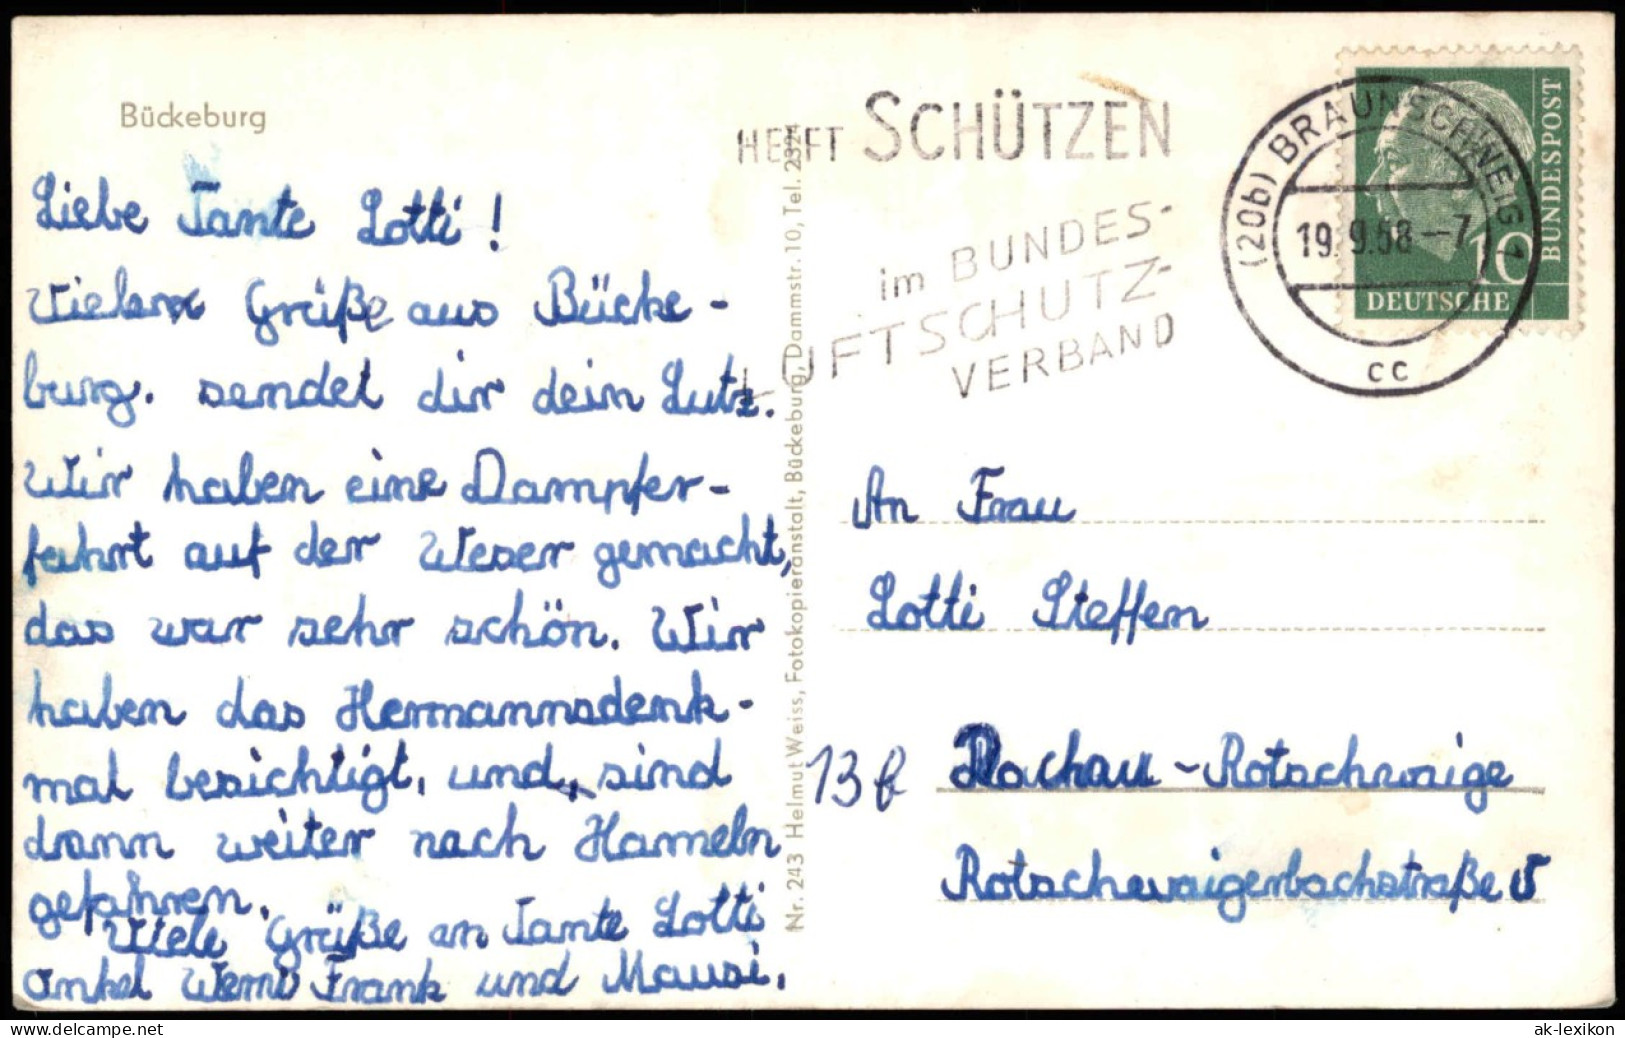 Bückeburg
Liebe Tante Lotti!
Vielen Grüße aus Bücke-
burg. sendet dir dein Lutz.
Wir haben eine Dampfer-
fahrt auf der Weser gemacht,
das war sehr schön. Wir
haben das Hermannsdenk-
mal besichtigt, und, sind
dann weiter nach Hameln
gefahren.
Viele Grüße an Tante Lotti
onkel Werni Frank und Mausi.
Nr. 243 Helmut Weiss, Fotokopieranstalt, Bückeburg, Dammstr. 10, Tel. 2324
HELFT SCHÜTZEN
im BUNDES-
LUFTSCHUTZ-
VERBAND
(20b) BRAUNSCHWEIG 1
19.9.58--7
cc
BUNDESPOST
10
DEUTSCHE
An Frau
Lotti Steffen
13b Dachau - Rotschwaige
Rotschwaigerbachstraße 5
www.delcampe.net
ak-lexikon